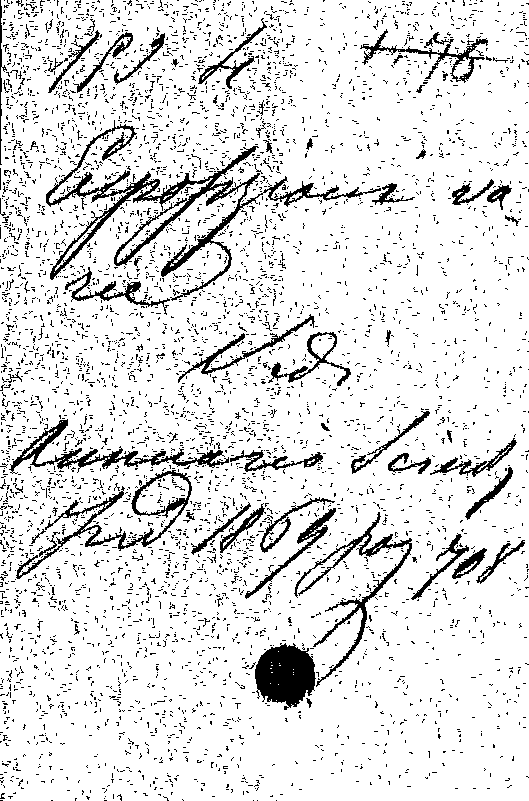 183. 4
Esposizioni va
rie
Vedi
Annuario Scient,
Ind 1869 pag. 708